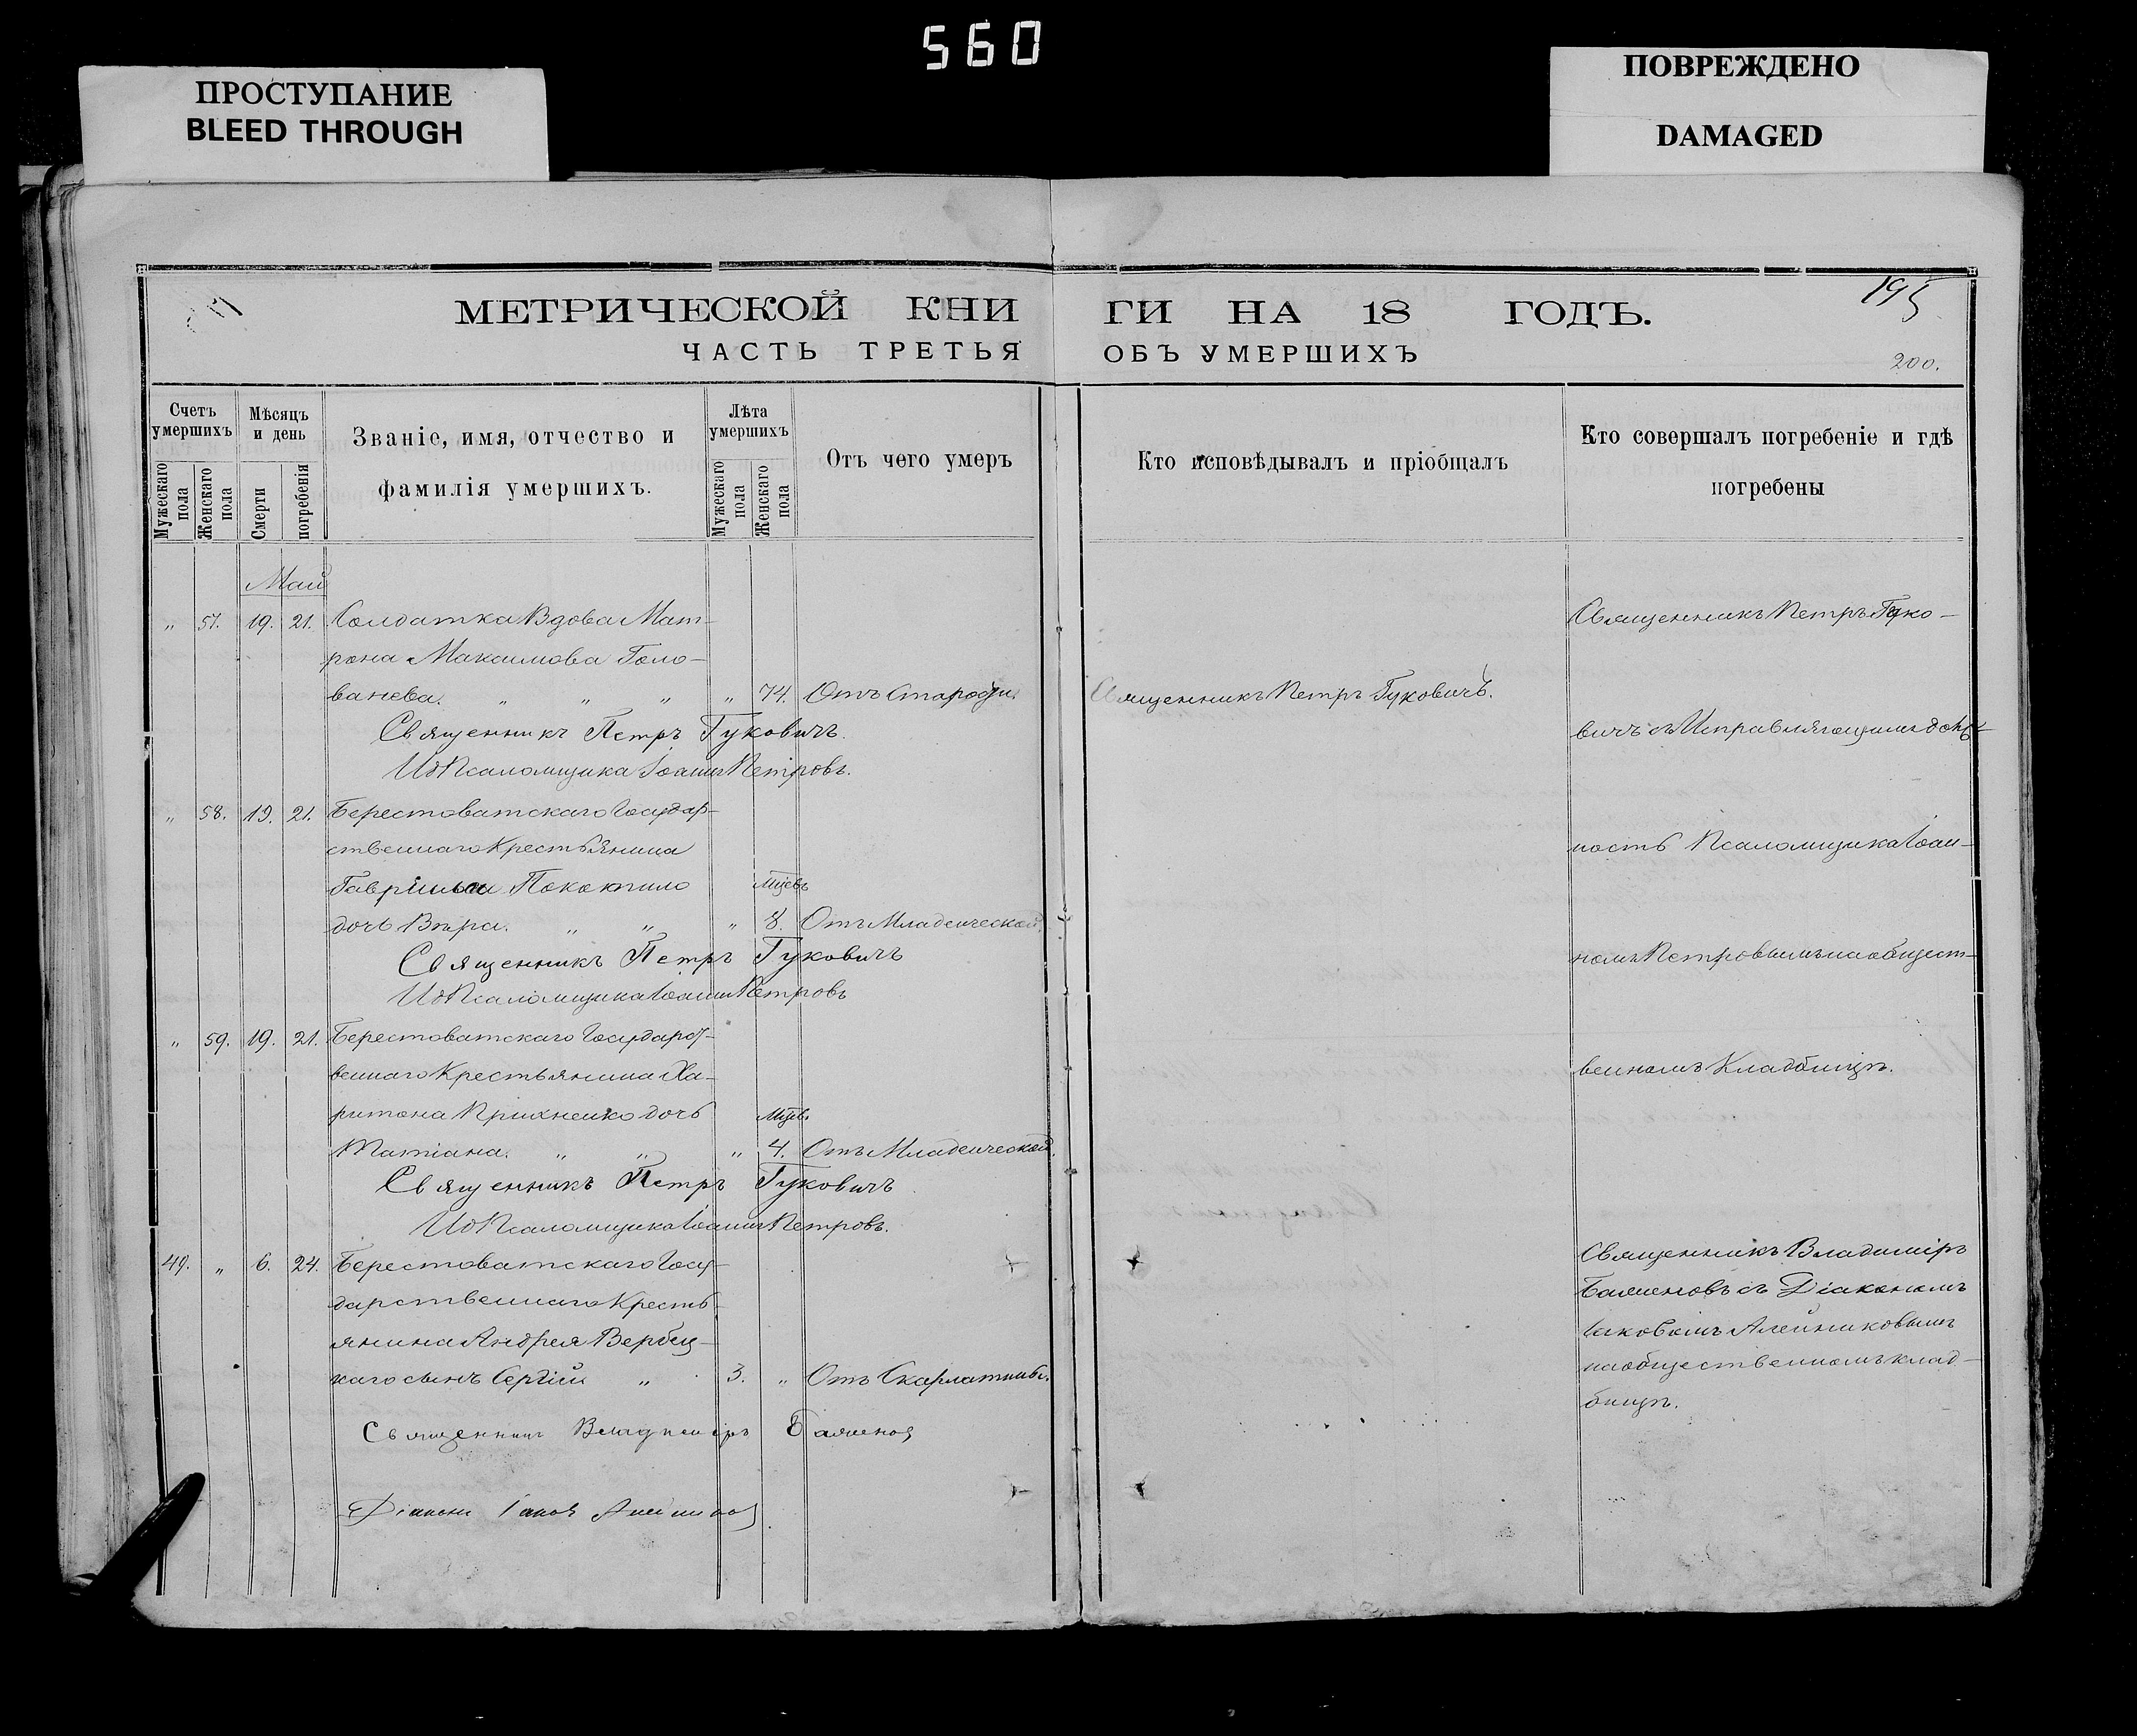 560
ПРОСТУПАНИЕ
BLEED THROUGH
ПОВРЕЖДЕНО
DAMAGED
195
МЕТРИЧЕСКОЙ КНИ ГИ НА 18 ГОДЪ.
ЧАСТЬ ТРЕТЬЯ ОБЪ УМЕРШИХЪ
200.
Счетъ умершихъ
Мужескаго пола
Женскаго пола
Мѣсяцъ и день
Смерти
погребенія
Званіе, имя, отчество и
фамилія умершихъ.
Лѣта умершихъ
Мужескаго пола
Женскаго пола
Отъ чего умеръ
Кто исповѣдывалъ и пріобщалъ
Кто совершалъ погребеніе и гдѣ
погребены
Май
„ 57. 19. 21. Солдатка Вдова Мат-
рона Максимова Голо-
ванева. „ „ „ „ 74. Отъ Старости.
Священникъ Петръ Гуковичъ.
Священникъ Петръ Гуковичъ.
И д Псаломщика Іоаннъ Петровъ.
„ 58. 19. 21. Берестоватскаго Государ-
ственнаго Крестьянина
Гавріила
Мцевъ
дочь Вѣра. „ „ „ 8. Отъ Младенческой.
Священникъ Петръ Гуковичъ
И д Псаломщика Іоаннъ Петровъ
„ 59. 19. 21. Берестоватскаго Государст-
веннаго Крестьянина Ха-
ритона дочь
Мцев.
Татіана. „ „ „ 4. Отъ Младенческой.
Священникъ Петръ Гуковичъ
И д Псаломщика Іоаннъ Петровъ.
Священникъ Петръ Гуко-
вичъ съ Исправляющимъ долж-
ность Псаломщика Іоан-
номъ Петровымъ на общест-
венномъ Кладбищѣ.
49. „ 6. 24. Берестоватскаго Госу-
дарственнаго Кресть-
янина Андрея Вербиц-
каго сынъ Сергій „ 3. „ Отъ Скарлатины.
Священникъ Владиміръ
Діаконъ Іаковъ
Священникъ Владиміръ
Баженовъ съ Діакономъ
Іаковомъ Алейниковымъ
на общественномъ клад-
бищѣ.